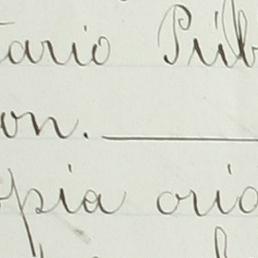 tario Públ
on.
opia orig